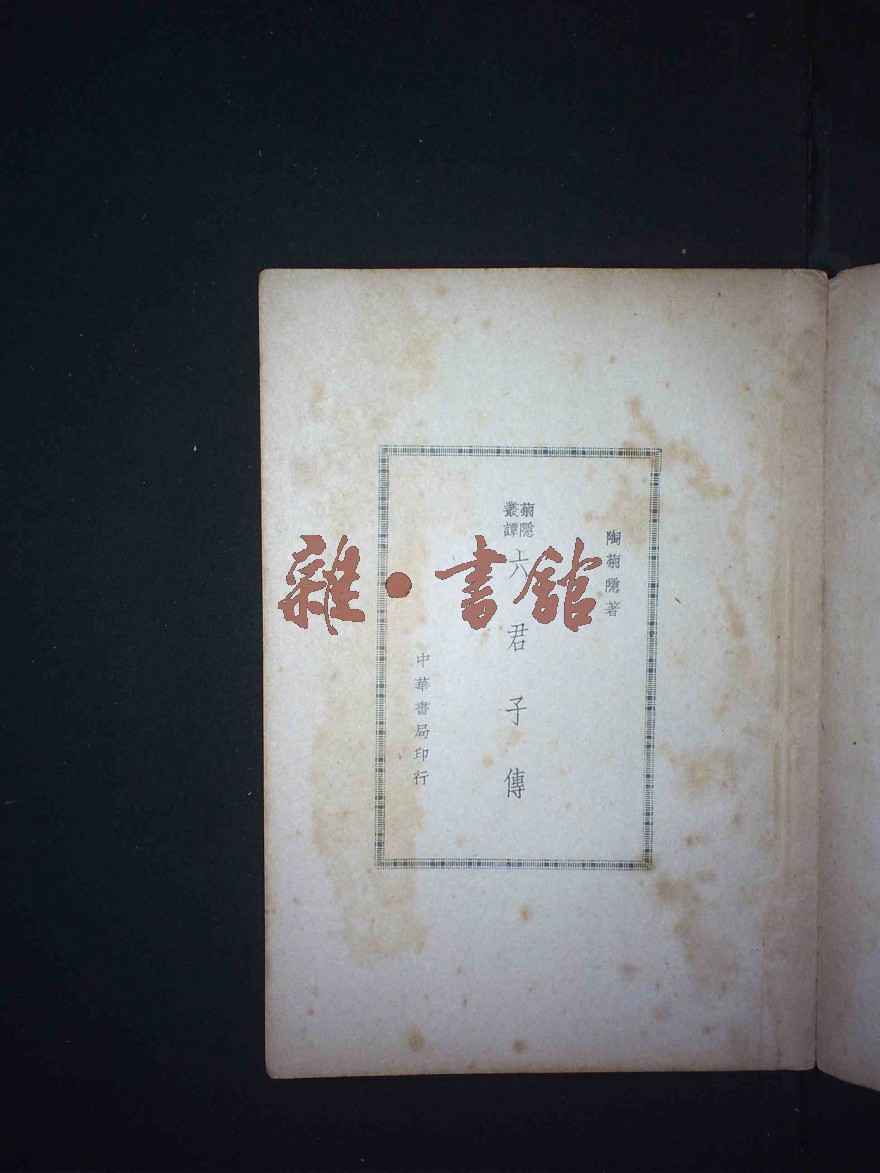 陶菊隱著
菊隱叢譚
六君子傳
中華書局印行
雜·書館